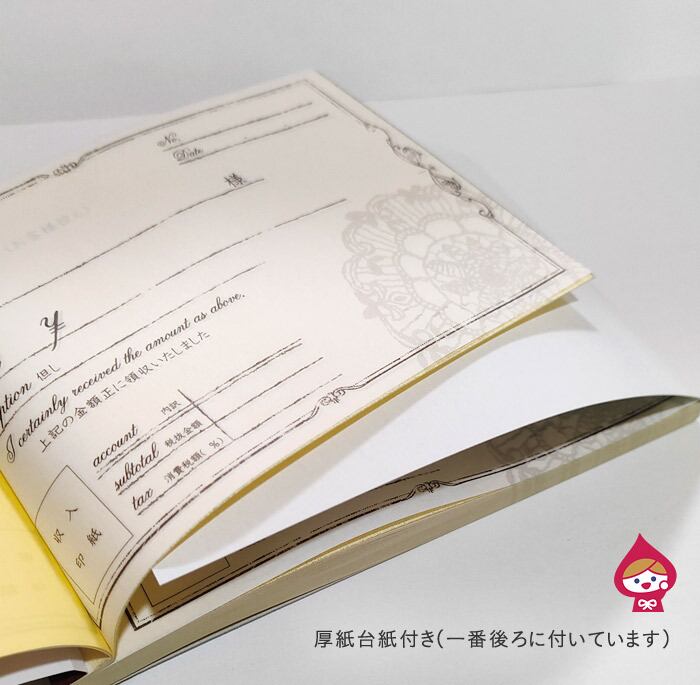 No.
Date
様
¥
ption 但し
I certainly received the amount as above.
上記の金額正に領収いたしました
account 内訳
subtotal 税抜金額
tax 消費税額( %)
収入
印紙
厚紙台紙付き(一番後ろに付いています)